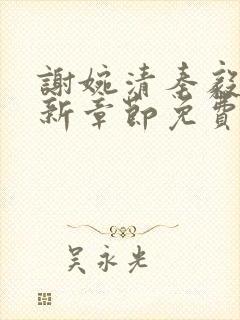 謝婉清秦毅
新章節免費
吳永光